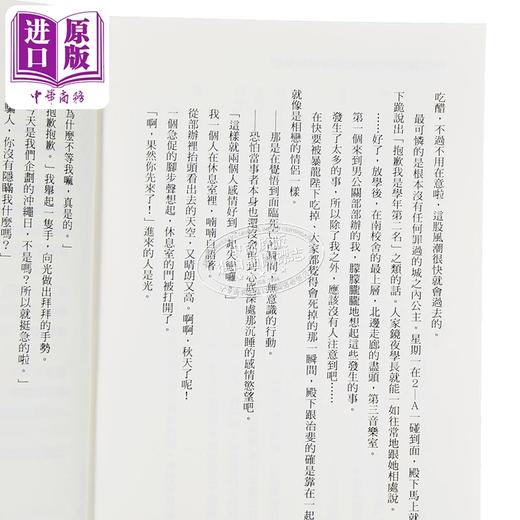 进口原版
中華商務
吃醋，不過不用在意啦，這股風潮很快就會過去的。
最可憐的是根本沒有任何罪過的城之內公主。星期一在2—A一碰到面，殿下馬上就
下跪說出「抱歉我是學年第二名」之類的話。人家鏡夜學長就能一如往常地跟她相處說。
……好了，放學後，在南校舍的最上層，北邊走廊的盡頭，第三音樂室。
第一個來到男公關部部辦的我，朦朦朧朧地想起這些發生的事。
發生了太多的事，所以除了我之外，應該沒有人注意到吧……
在快要被暴龍陛下吃掉、大家都覺得會死掉的那一瞬間，殿下跟治斐的確是靠在一起
就像是相戀的情侶一樣。
——那是在覺悟到面臨死亡的瞬間，無意識的行動。
——恐怕當事者本身也還沒發現心底深處那沉睡的感情慾望吧。
「這樣就兩個人感情好到一起失戀囉」
我一個人在休息室裡，喃喃自語著
從部辦裡抬頭看出去的天空，又晴朗又高。啊啊，秋天了呢！
一個急促的腳步聲想起，休息室的門被打開了。
「啊，果然你先來了！」進來的人是光。
為什麼不等我嘛，真是的。
抱歉抱歉。」我舉起一隻手，向光做出拜拜的手勢。
今天是我們企劃的沖繩日，不是嗎？所以就挺急的啦。」
騙人，你沒有隱瞞我什麼嗎？」